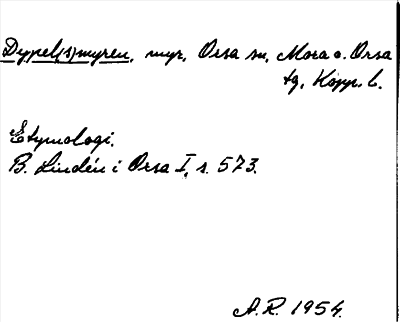 Dyppel(s)myren, myr, Orsa sn, Mora o. Orsa
tg, Kopp. l.
Etymologi.
B. Lindén i Orsa I, s. 573.
A.R. 1954.